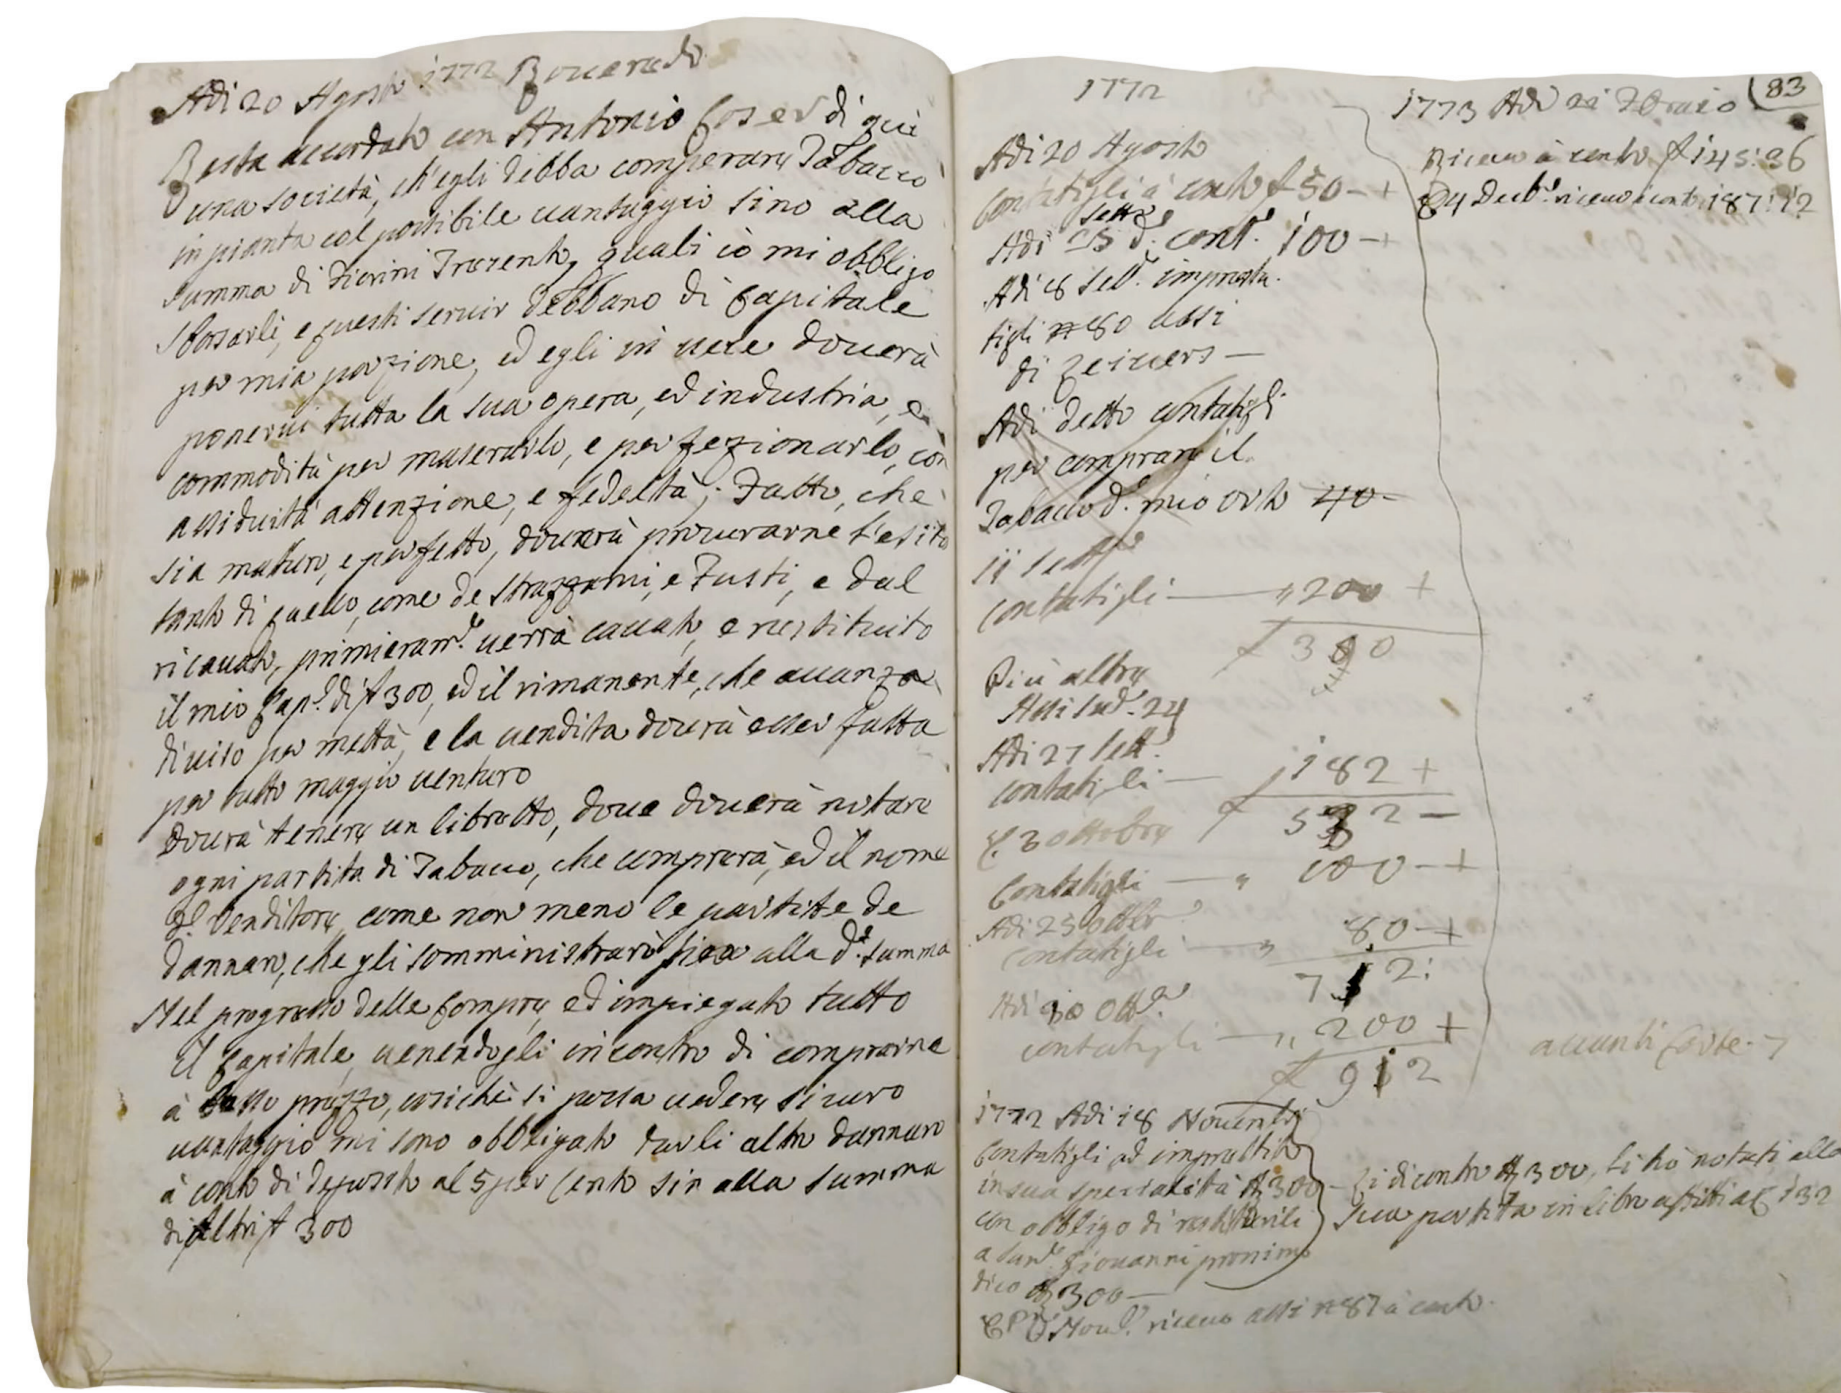 Adi 20 Agosto 1772 Roueredo
Resta accordato con Antonio Coser di qui
una società, ch'egli debba comperare Tabacco
in pianta col possibile uantaggio sino alla
summa di Fiorini Trecento, quali iò mi obbligo
sborsarli, e questi seruir debbano di Capitale
per mia porzione, ed egli in uece douerà
ponerui tutta la sua opera, ed industria, e
commodità per maserarlo, e perfezionarlo, con
assiduità attenzione, e fedeltà; Fatto, che
sia maturo, e perfetto, douerà procurarne l'esito
tanto di quello, come de Strazzami, e Fusti, e dal
ricauato, primieram.e uerrà cauato, e restituito
il mio Cap.l di f 300, ed il rimanente, che auanza
diuiso per mettà, e la uendita dourà esser fatta
per tutto maggio uenturo
dourà tenere un libretto, doue douerà notare
ogni partita di Tabacco, che comprerà, ed il nome
d.l Venditore, come non meno le partite de
dannari, che gli somministrarò sino alla d.a summa
Nel progresso delle Compre, ed impiegato tutto
il Capitale, uenendogli incontro di comprarne
à basso prezzo, cosichè si possa uedere sicuro
uantaggio mi sono obbligato darli altri dannari
à conto di deposito al 5 per Cento sin alla summa
di altri f 300
1772
Adi 20 Agosto
Contatigli à conto f 50 - +
Adi 25 d.o cont. 100 - +
Sett.e
Adi 8 Sett. impresta-
tigli n 80 assi
di Zeiuers -
Adi detto contatigli
per comprare il
Tabacco d. mio orto 40 -
11 Sett.e
contatigli - " 200 +
f 300
Più altre
Assi sud.e 24
Adi 27 Sett.
contatigli - 182 +
f 532 -
3 ottobre
Contatigli - " 100 - +
Adi 25 ottbr
contatigli - " 80 - +
712 :
Adi 30 Ott.e
contatigli - " 200 +
f 912
1772 Adi 18 Nouembr
Contatigli ad imprestito
in sua specialità f 300 -
con obbligo di restituirili
a San. Giouanni prossimo
dico f 300 -
Nou. riceuo assi n 87 à conto.
83
1773 Adi
Riceuo à conto f 145:36
24 Decb.e riceuo à conto 187:12
auanti
di contro f 300, li hò notati alla
Sua partita in libro affitti a C 132